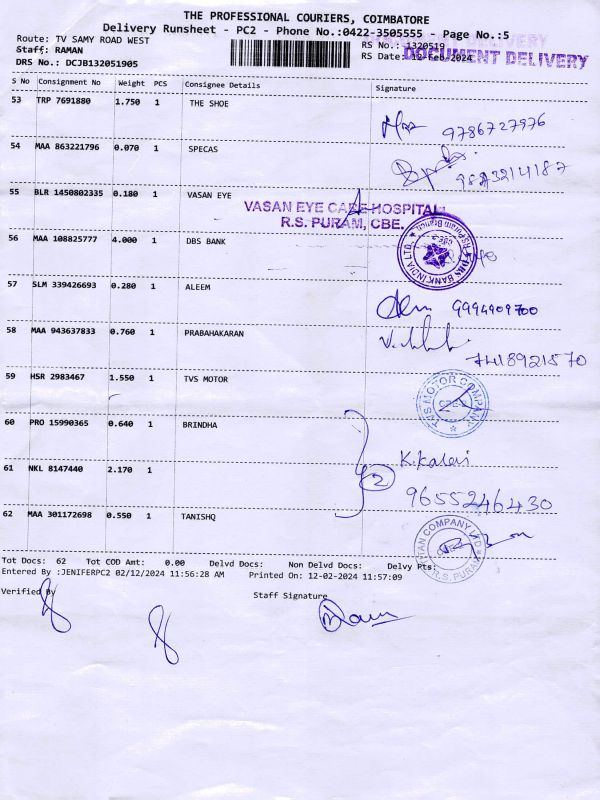 THE PROFESSIONAL COURIERS, COIMBATORE
Delivery Runsheet - PC2 - Phone No.:0422-3505555 - Page No.:5
Route: TV SAMY ROAD WEST
RS No.: 1320519
Staff: RAMAN
RS Date: 12-Feb-2024
DOCUMENT DELIVERY
DRS No.: DCJB132051905
S No Consignment No Weight PCS Consignee Details Signature
53 TRP 7691880 1.750 1 THE SHOE
9786727976
54 MAA 863221796 0.070 1 SPECAS
55 BLR 1450802335 0.180 1 VASAN EYE
VASAN EYE CARE HOSPITAL
R.S. PURAM, CBE.
56 MAA 108825777 4.000 1 DBS BANK
DBS BANK INDIA LTD.
57 SLM 339426693 0.280 1 ALEEM
9994909700
58 MAA 943637833 0.760 1 PRABAHAKARAN
7418921570
59 HSR 2983467 1.550 1 TVS MOTOR
TVS MOTOR COMPANY
60 PRO 15990365 0.640 1 BRINDHA
K.Kalai
61 NKL 8147440 2.170 1
2
9655246430
62 MAA 301172698 0.550 1 TANISHQ
TITAN COMPANY LTD
R.S. PURAM
Tot Docs: 62 Tot COD Amt: 0.00 Delvd Docs: Non Delvd Docs: Delvy Pts:
Entered By :JENIFERPC2 02/12/2024 11:56:28 AM Printed On: 12-02-2024 11:57:09
Verified By Staff Signature